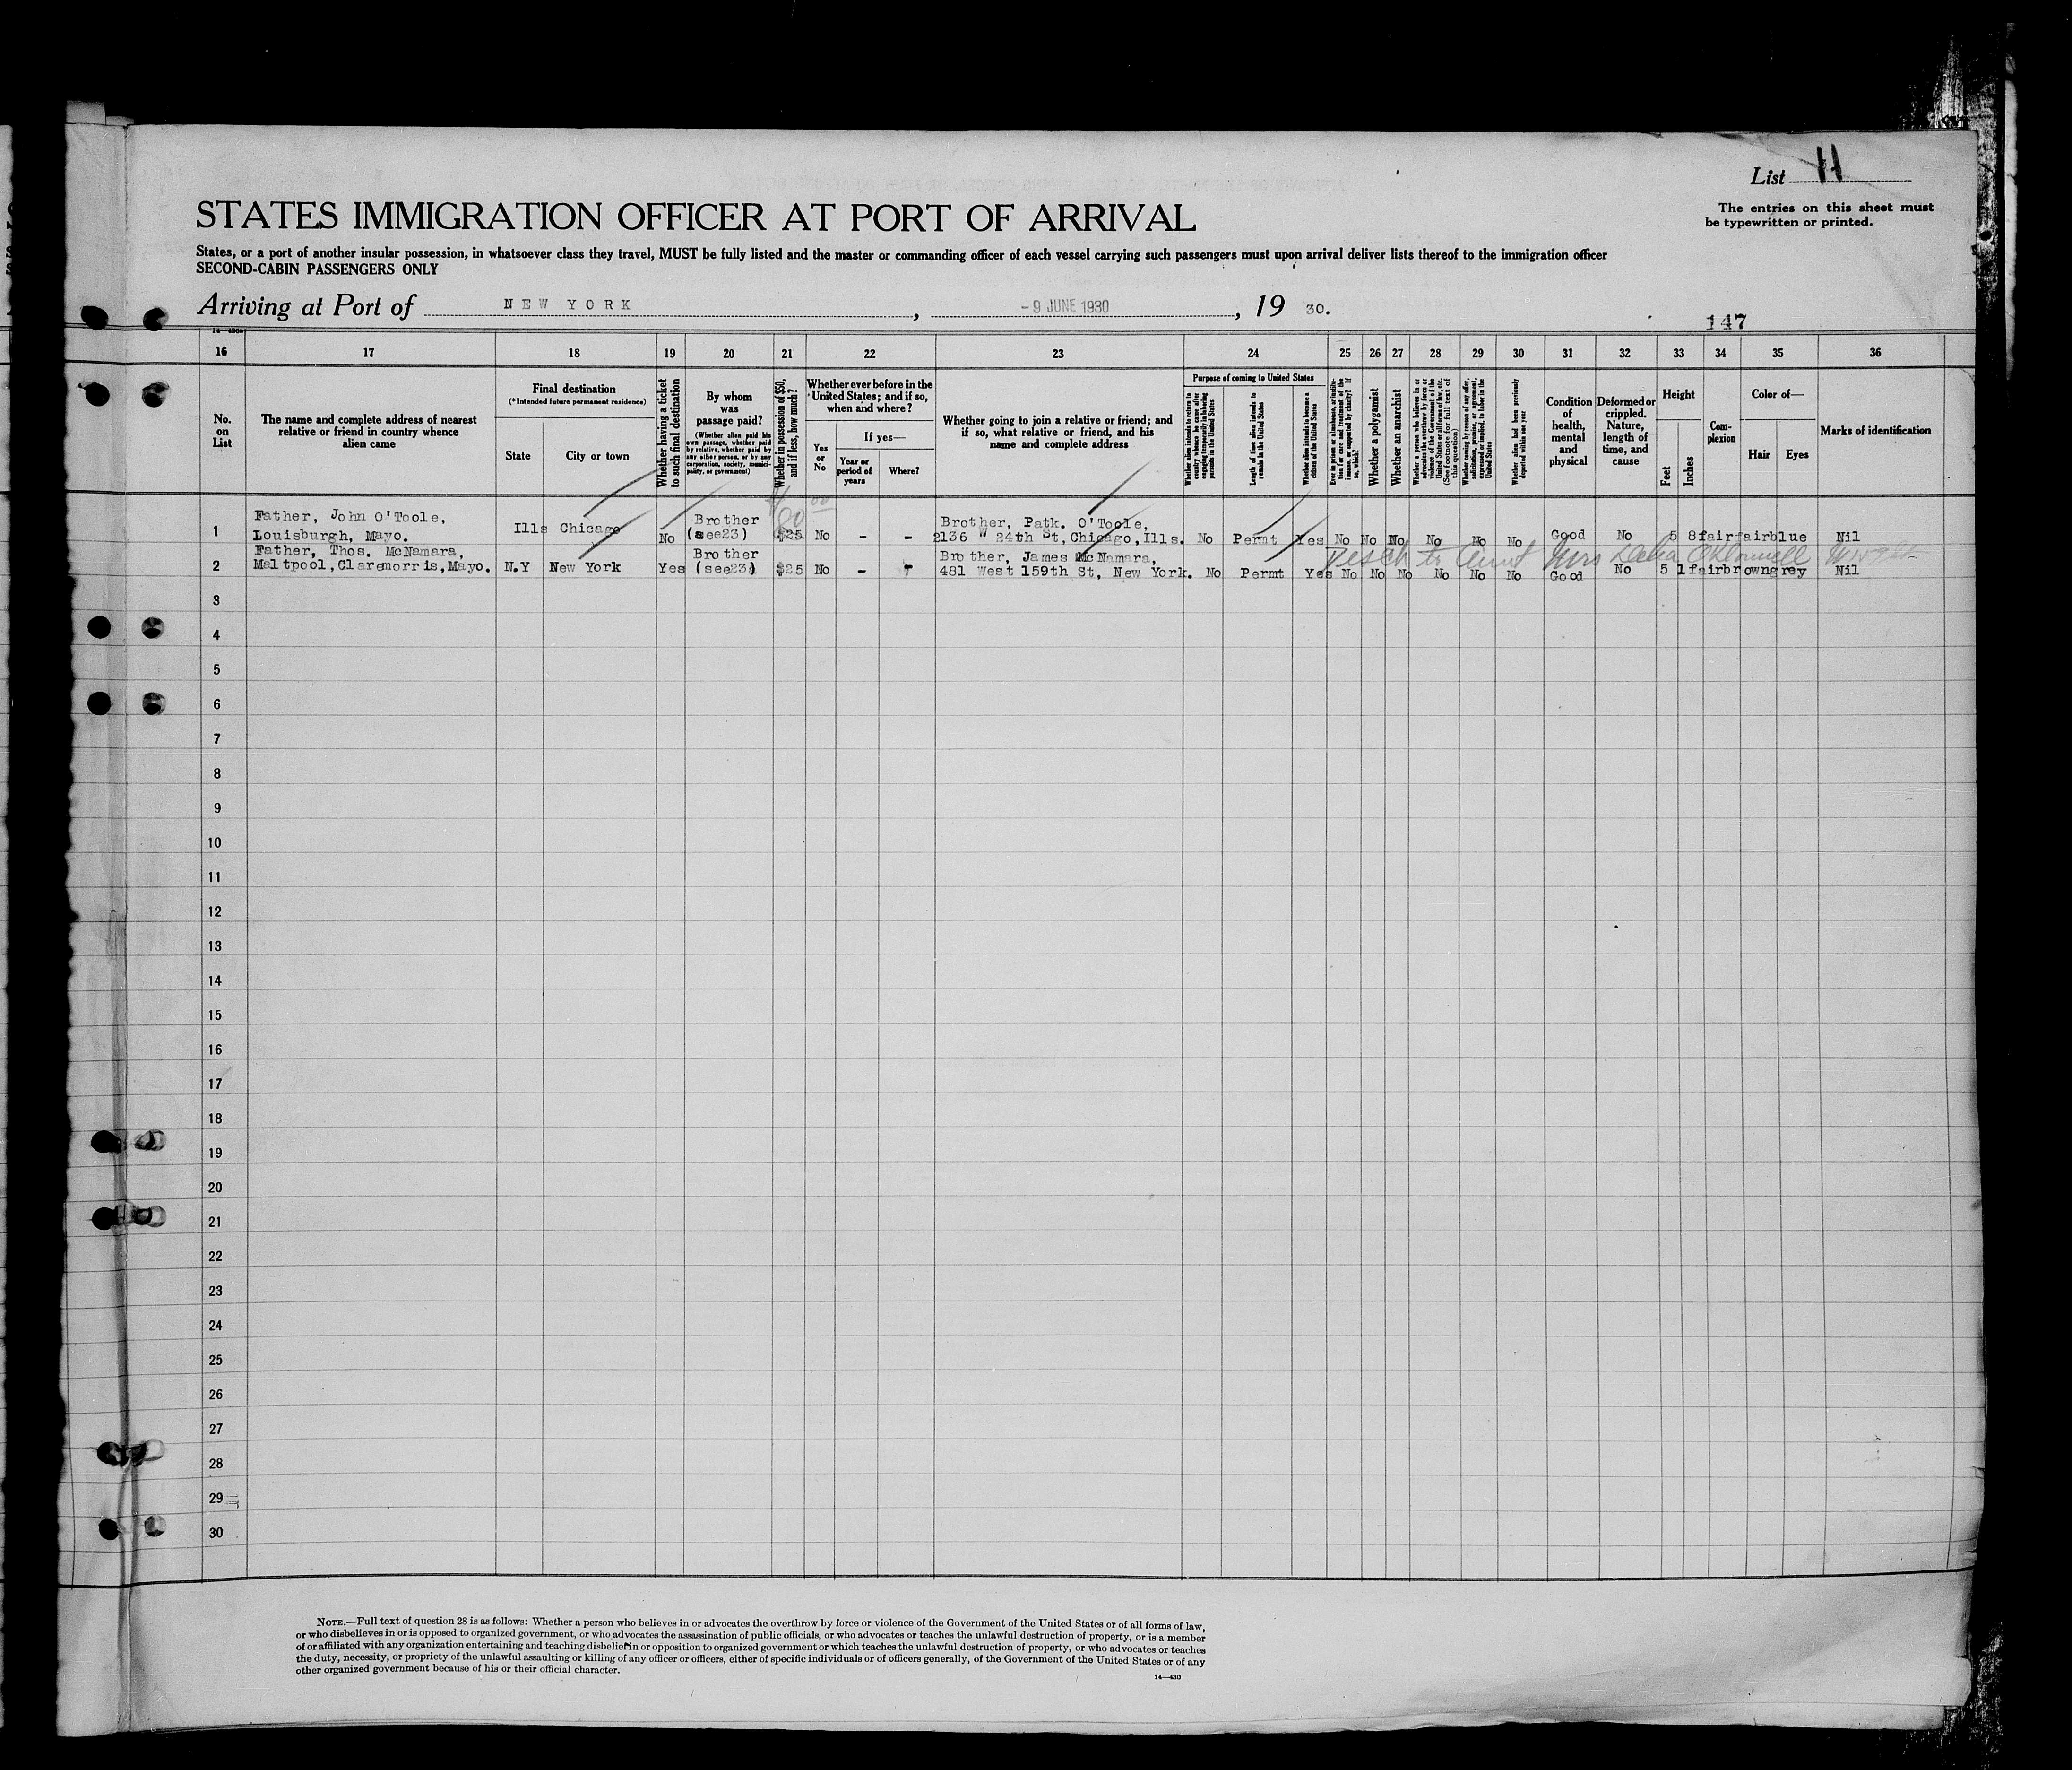 List 11
The entries on this sheet must
be typewritten or printed.
STATES IMMIGRATION OFFICER AT PORT OF ARRIVAL
States, or a port of another insular possession, in whatsoever class they travel, MUST be fully listed and the master or commanding officer of each vessel carrying such passengers must upon arrival deliver lists thereof to the immigration officer
SECOND-CABIN PASSENGERS ONLY
Arriving at Port of NEW YORK, -9 JUNE 1930, 19 30.
147
14-430
16 17 18 19 20 21 22 23 24 25 26 27 28 29 30 31 32 33 34 35 36
No.
on
List
The name and complete address of nearest
relative or friend in country whence
alien came
Final destination
(*Intended future permanent residence)
State
City or town
Whether having a ticket
to such final destination
By whom
was
passage paid?
(Whether alien paid his
own passage, whether paid
by relative, whether paid by
any other person, or by any
corporation, society, munici-
pality, or government)
Whether in possession of $50,
and if less, how much?
Whether ever before in the
United States; and if so,
when and where?
Yes
or
No
If yes—
Year or
period of
years
Where?
Whether going to join a relative or friend; and
if so, what relative or friend, and his
name and complete address
Purpose of coming to United States
Whether alien intends to return to
country whence he came after
engaging temporarily in laboring
pursuits in the United States
Length of time alien intends to
remain in the United States
Whether alien intends to become a
citizen of the United States
Ever in prison or almshouse, or institu-
tion for care and treatment of the
insane, or supported by charity? If
so, which?
Whether a polygamist
Whether an anarchist
Whether a person who believes in or
advocates the overthrow by force or
violence of the Government of the
United States or all forms of law, etc.
(See footnote for full text of
this question)
Whether coming by reason of any offer,
solicitation, promise, or agreement,
expressed or implied, to labor in the
United States
Whether alien had been previously
deported within one year
Condition
of
health,
mental
and
physical
Deformed or
crippled.
Nature,
length of
time, and
cause
Height
Feet
Inches
Com-
plexion
Color of—
Hair
Eyes
Marks of identification
$80 00
1 Father, John O'Toole, Louisburgh, Mayo. Ills Chicago No Brother (see23) $25 No - - Brother, Patk. O'Toole, 2136 W 24th St, Chicago, Ills. No Permt Yes No No No No No No Good No 5 8 fair fair blue Nil
to Aunt Mrs
2 Father, Thos. McNamara, Maltpool, Claremorris, Mayo. N.Y New York Yes Brother (see23) $25 No - - Brother, James McNamara, 481 West 159th St, New York. No Permt Yes No No No No No No Good No 5 1 fair brown grey Nil
3
4
5
6
7
8
9
10
11
12
13
14
15
16
17
18
19
20
21
22
23
24
25
26
27
28
29
30
NOTE.—Full text of question 28 is as follows: Whether a person who believes in or advocates the overthrow by force or violence of the Government of the United States or of all forms of law,
or who disbelieves in or is opposed to organized government, or who advocates the assassination of public officials, or who advocates or teaches the unlawful destruction of property, or is a member
of or affiliated with any organization entertaining and teaching disbelief in or opposition to organized government or which teaches the unlawful destruction of property, or who advocates or teaches
the duty, necessity, or propriety of the unlawful assaulting or killing of any officer or officers, either of specific individuals or of officers generally, of the Government of the United States or of any
other organized government because of his or their official character.
14—430